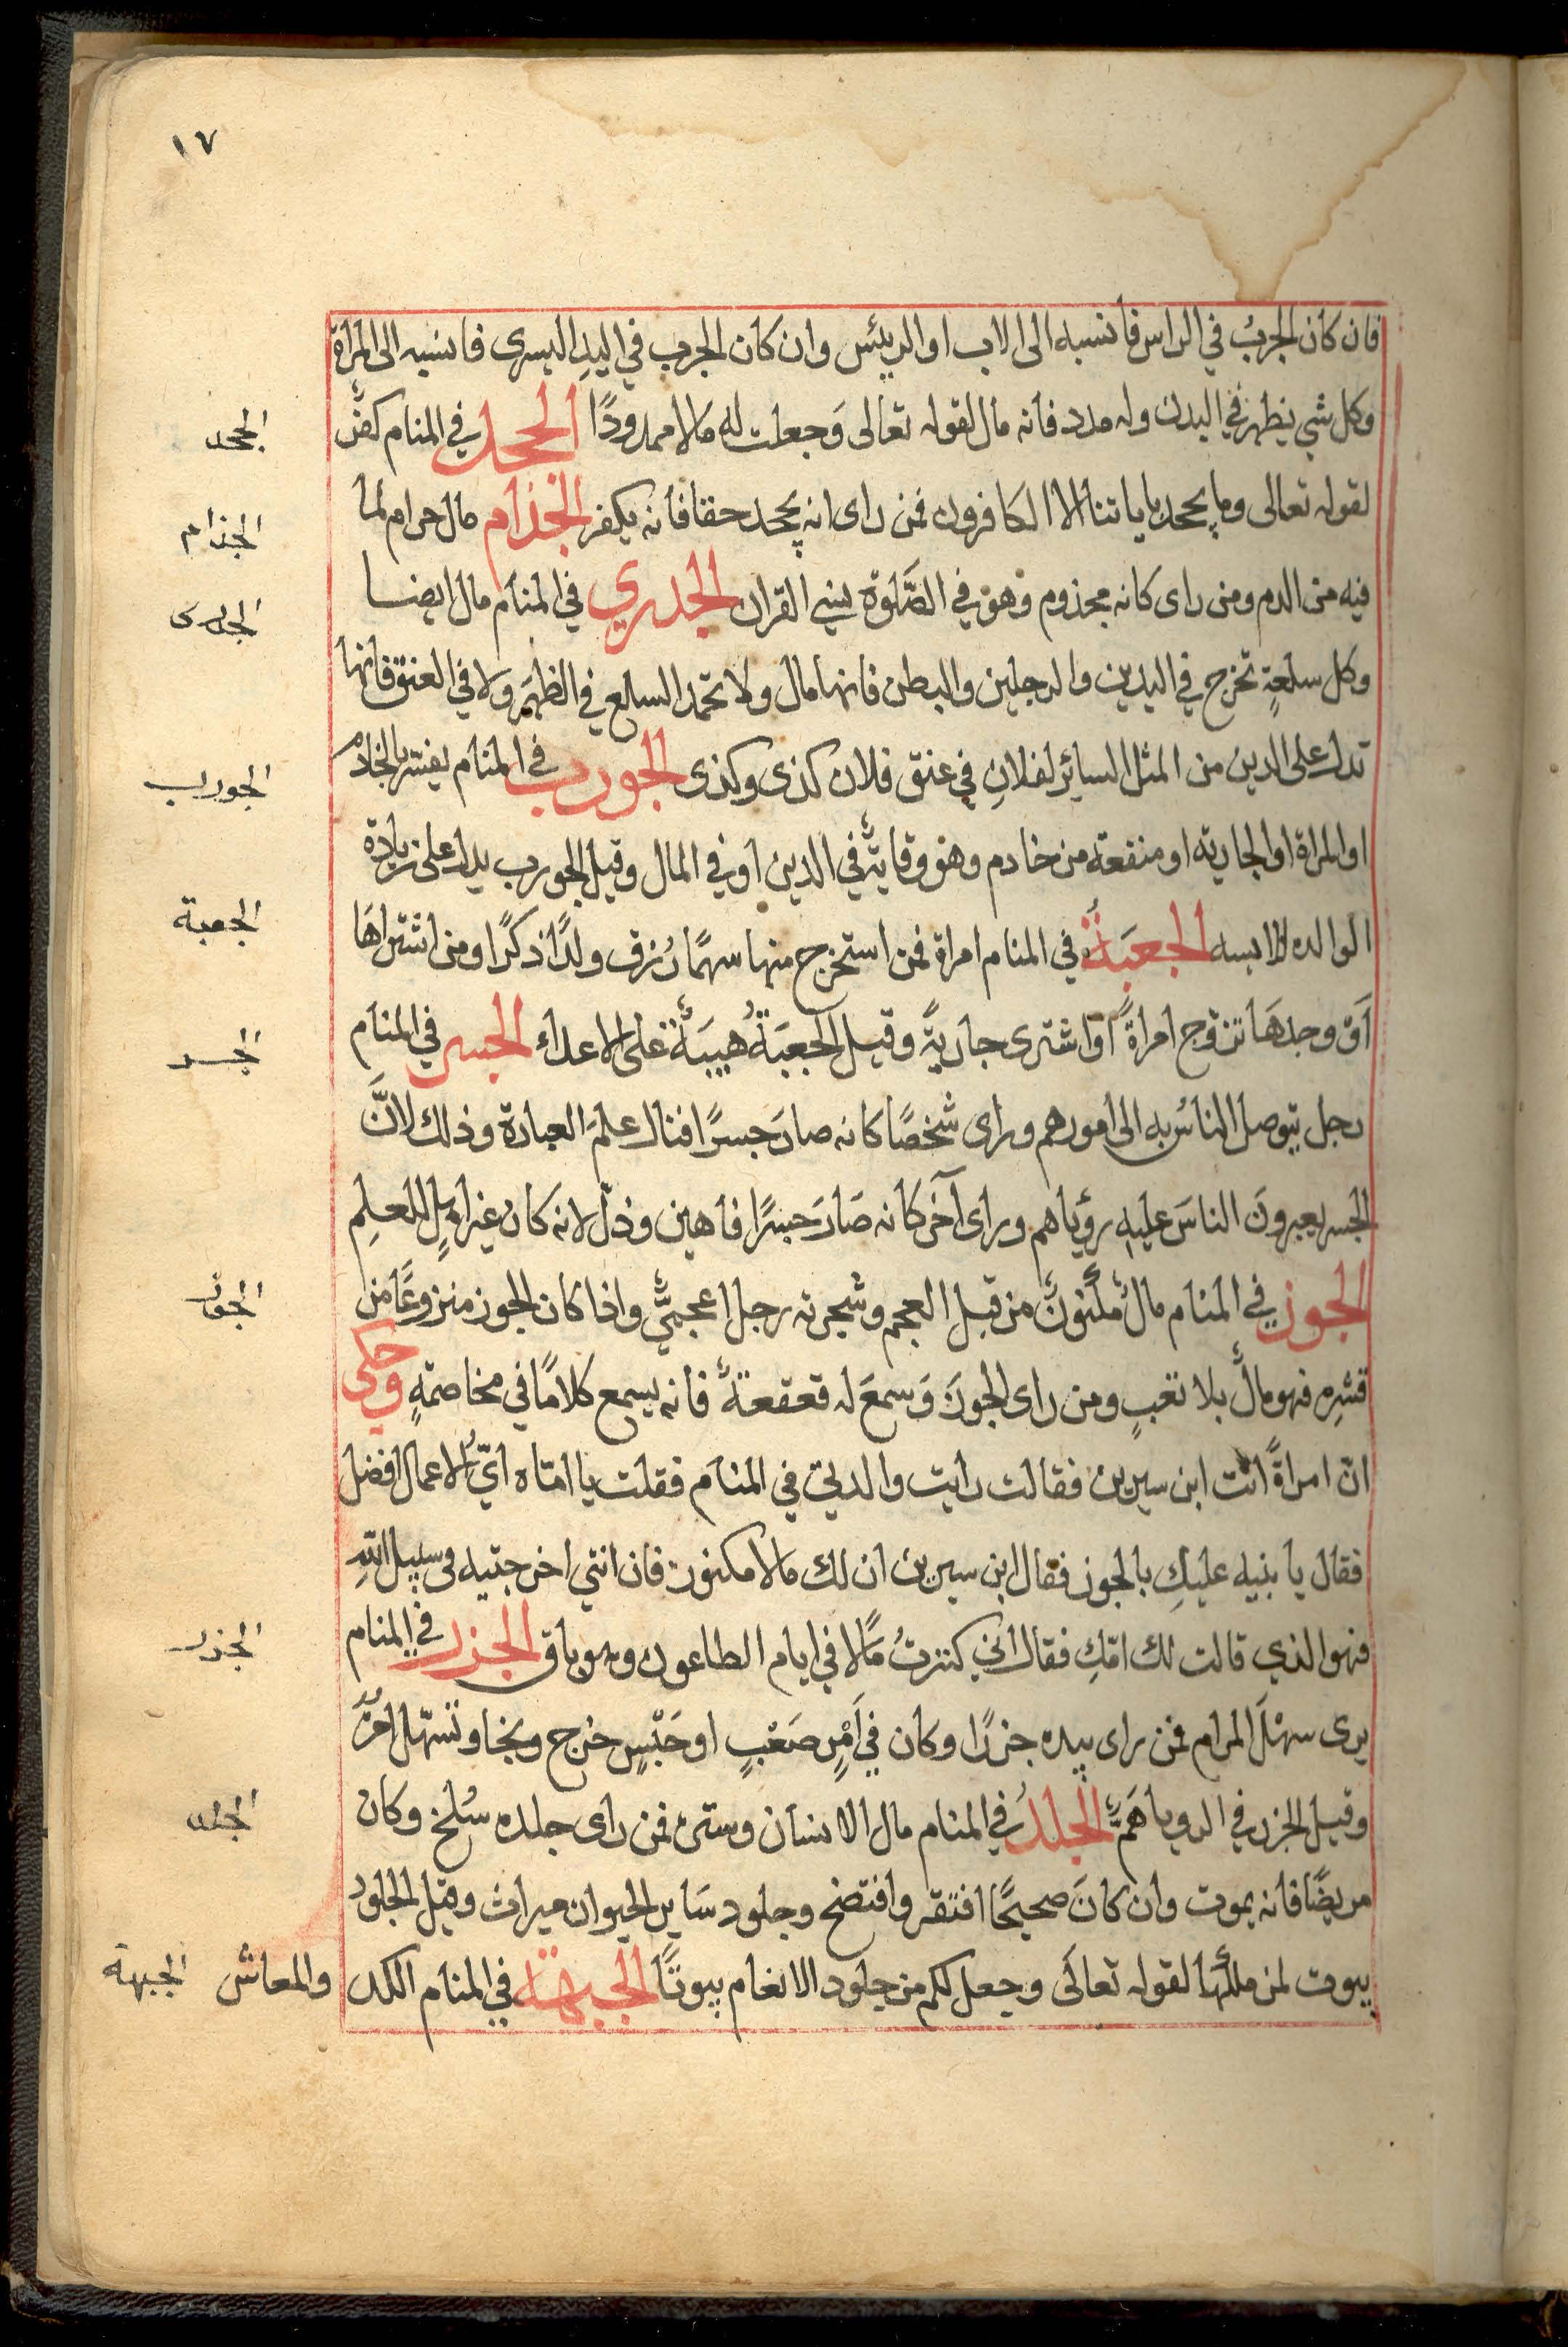 ١٧
فان كان الجرب في الراس فانسبه الى الاب او الرييس وان كان الجرب في اليد اليسرى فانسبه الى المراة
وكل شي يظهر في البدن وله مدد فانه مال لقوله تعالى وَجعلت له مَالا ممدودًا الجحد في المنام كفر
الجحد
لقوله تعالى وما يجحد باياتنا الا الكافرون فمن راى انه يجحد حقا فانه يكفر الجذام مال حرام لما
الجذام
فيه من الدم ومن راى كانه مجذوم وهو في الصَّلوة ينسي القران الجدري في المنام مال ايضا
الجدرى
وكل سلعةٍ تخرج في اليدين والرجلين والبطن فانها مال ولا تحمد السلع في الظهَر وَلا في العنق فانها
تدل على الدين من المثل السائر لفلانِ في عنق فلان كذى وكذى الجورب في المنام يفسّر بالخادم
الجورب
او المراة او الجارية او منفعة من خادم وهو وقايةٌ في الدين او في المال وقيل الجورب يدل على زيادة
الوالده للابسه الجعبَةُ في المنام امراة فمن استخرج منها سهمًا رُزق ولدًا ذكرًا ومن اشتراهَا
الجعبة
اَوْ وجدهَا تزوج امراةً او اشترى جاريَةً وقيل الجعبَةُ هيبَةٌ على الاعداء الجسر في المنام
الجسر
رجل يتوصل الناسُ به الى امورهم وراى شخصًا كانه صارَ جسرًا فنال علمَ العبارة وذلك لانَّ
الجسر يعبرونَ الناسَ عليهِ رؤياهم وراى آخَر كانه صَارَ جسرًا فاهين وذلّ لانه كان غير اهلٍ للعلمِ
الجوز في المنام مالٌ مكنونٌ من قبل العجم وشجرته رجل اعجميٌّ واذا كان الجوز منزوعًا من
الجوز
قشرِه فهو مالٌ بلا تعبٍ ومن راى الجوزَ وَسمعَ له قعقعةً فانه يسمع كلامًا في مخاصمةٍ وحكى
انّ امراةً اتت ابن سيرين فقالت رايت والدتي في المنام فقلت يا امتاه ايّ الاعمال افضل
فقال يا بنيه عليكِ بالجوز فقال ابن سيرين ان لك مالا مكنوز فان انتي اخرجتيه في سبيل اللهِ
فهو الذي قالت لك امّكِ فقال اني كنزتُ مَالا في ايام الطاعون وهو باق الجزر في المنام
الجزر
يرى سهْلَ المرام فمن راى بيده جزرًا وكان في اَمْرٍ صَعْبٍ او حَبْسٍ خرج ونجا وتسهّل امرُهُ
وقيل الجزر في الرويا هَمٌّ الجلدُ في المنام مال الانسان وستر فمن راى جلده سُلخ وكان
الجلد
مريضًا فانه يموت وان كانَ صحيحًا افتقر وافتضح وجلود سَاير الحيوان ميراث وقيل الجلود
بيوت لمن ملكها لقوله تعالَى وجعل لكم من جلود الانعام بيوتًا الجبهة في المنام الكد والمعاش
الجبهة